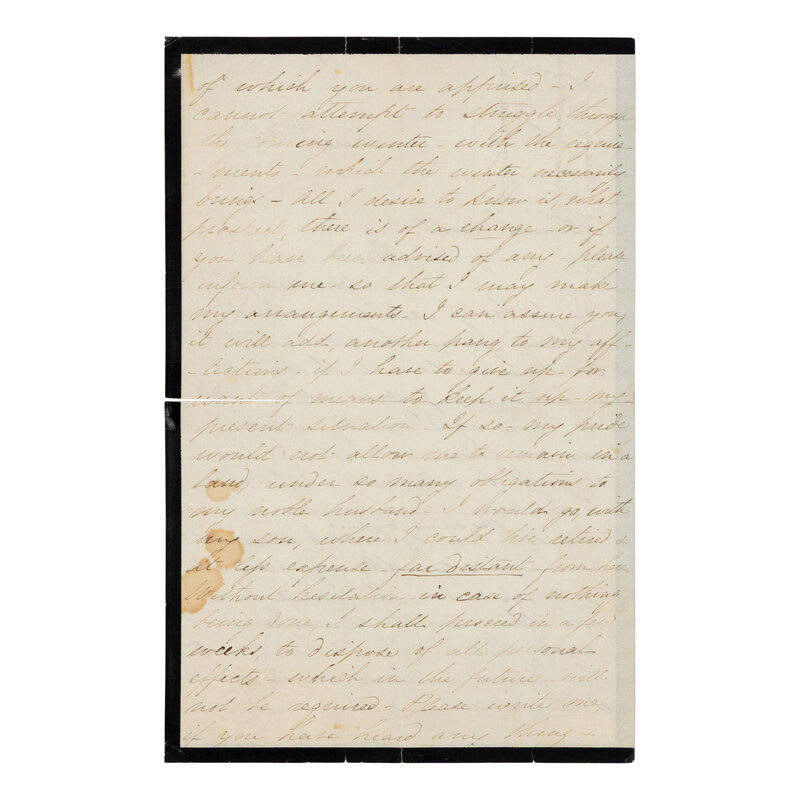 of which you are apprised - I
cannot attempt to struggle through
the coming winter - with the require
-ments - which the winter necessarily
brings - All I desire to know is, what
prospect, there is of a change - or if
you have been advised of any - please
inform me - so that I may make
my arrangements - I can assure you,
it will add, another pang to my aff-
-lictions - if I have to give up - for
want of means to keep it up - my
present situation - If so - my pride
would not allow me to remain in a
land, under so many obligations to
my noble husband - I would go, with
my son, where I could live retired &
at less expense - far distant - from here,
Without hesitation - in case of nothing
being done, I shall proceed in a few
weeks, to dispose of all personal
effects - which in the future - will
not be required - Please write me,
if you have heard any thing -